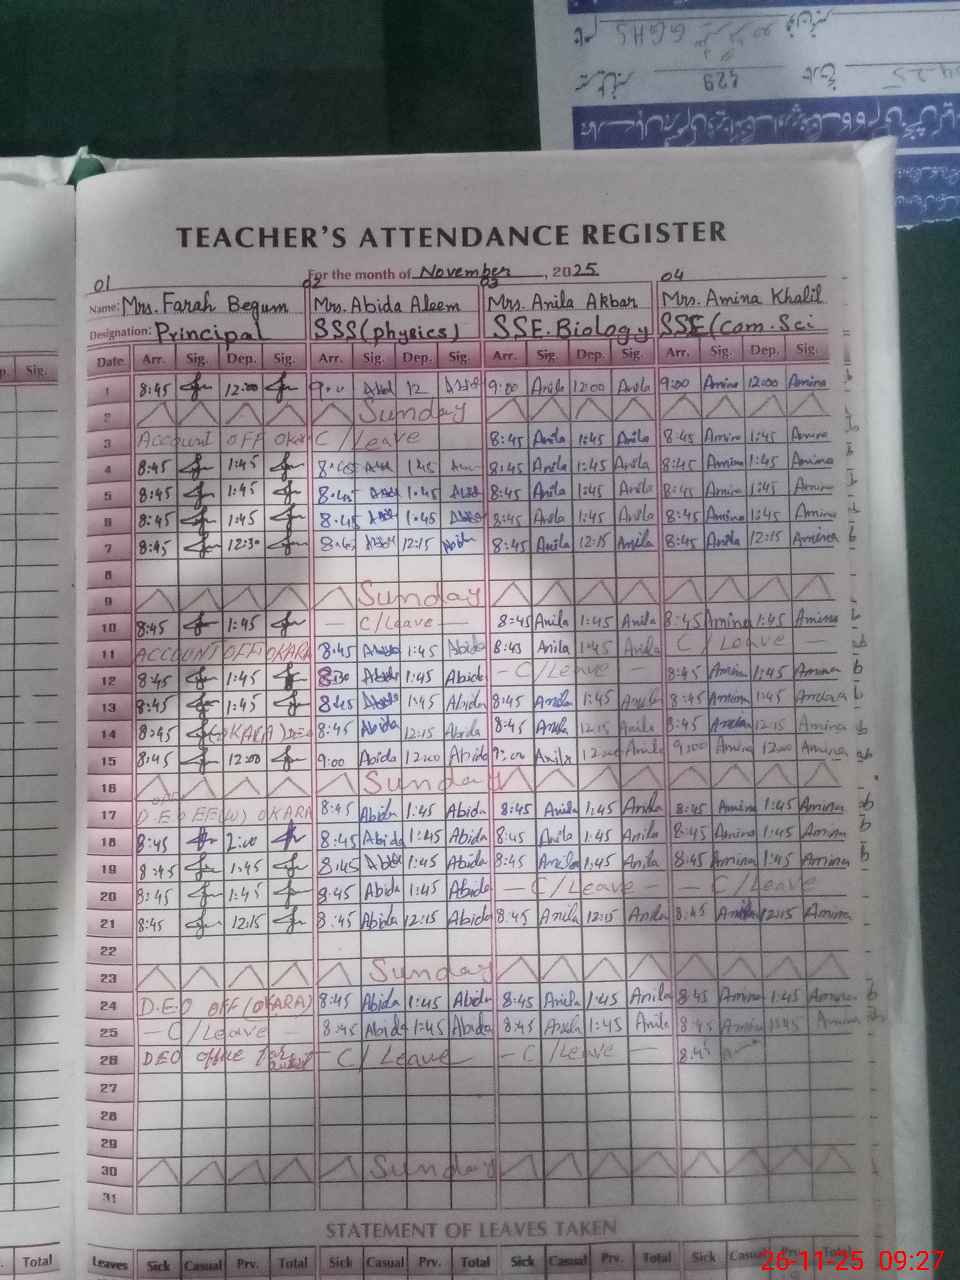 GGHS
829
TEACHER'S ATTENDANCE REGISTER
For the month of November, 2025
01 02 03 04
Name: Mrs. Farah Begum Mrs. Abida Aleem Mrs. Anila Akbar Mrs. Amina Khalil
Designation: Principal SSS (physics) SSE. Biology SSE (Com. Sci
p. Sig. Date Arr. Sig. Dep. Sig. Arr. Sig. Dep. Sig. Arr. Sig. Dep. Sig. Arr. Sig. Dep. Sig.
1 8:45 12:00 9:00 Abid 12 9:00 Anila 12:00 Anila 9:00 Amina 12:00 Amina
2 Sunday
3 Account OFF Okar C/Leave 8:45 Anila 1:45 Anila 8:45 Amina 1:45 Amina
4 8:45 1:45 1:45 8:45 Anila 1:45 Anila 8:45 Amina 1:45 Amina
5 8:45 1:45 8:45 1:45 8:45 Anila 1:45 Anila 8:45 Amina 1:45 Amina
6 8:45 1:45 8:45 1:45 8:45 Anila 1:45 Anila 8:45 Amina 1:45 Amina
7 8:45 12:30 12:15 Abida 8:45 Anila 12:15 Anila 8:45 12:15 Amina
8
9 Sunday
10 8:45 1:45 - C/Leave - 8:45 Anila 1:45 Anila 8:45 Amina 1:45 Amina
11 ACCOUNT OFF OKARA 8:45 1:45 Abida 8:43 Anila 1:45 Anila C/Leave
12 8:45 1:45 8:30 Abida 1:45 Abida - C/Leave - 8:45 Amina 1:45 Amina
13 8:45 1:45 8:45 Abida 1:45 Abida 8:45 Anila 1:45 Anila 8:45 Amina 1:45
14 8:45 (OKARA) DEO 8:45 Abida 12:15 Abida 8:45 Anila 12:15 Anila 8:45 12:15 Amina
15 8:45 12:00 9:00 Abida 12:00 Abida 9:00 Anila 12:00 Anila 9:00 Amina 12:00 Amina
16 Sunday
17 D.E.O EE(W) OKARA 8:45 Abida 1:45 Abida 8:45 Anila 1:45 Anila 8:45 Amina 1:45 Amina
18 8:45 2:00 8:45 Abida 1:45 Abida 8:45 Anila 1:45 Anila 8:45 Amina 1:45 Amina
19 8:45 1:45 8:45 Abida 1:45 Abida 8:45 Anila 1:45 Anila 8:45 Amina 1:45 Amina
20 8:45 1:45 8:45 Abida 1:45 Abida - C/Leave - - C/Leave
21 8:45 12:15 8:45 Abida 12:15 Abida 8:45 Anila 12:15 Anila 8:45 12:15 Amina
22
23 Sunday
24 D.E.O OFF (OKARA) 8:45 Abida 1:45 Abida 8:45 Anila 1:45 Anila 8:45 Amina 1:45 Amina
25 - C/Leave - 8:45 Abida 1:45 Abida 8:45 Anila 1:45 Anila 8:45 Amina 1:45 Amina
26 DEO office - C/Leave - C/Leave - 8:45
27
28
29
30 Sunday
31
STATEMENT OF LEAVES TAKEN
Total Leaves Sick Casual Prv. Total Sick Casual Prv. Total Sick Casual Prv. Total Sick Casual Prv. Total
26-11-25 09:27